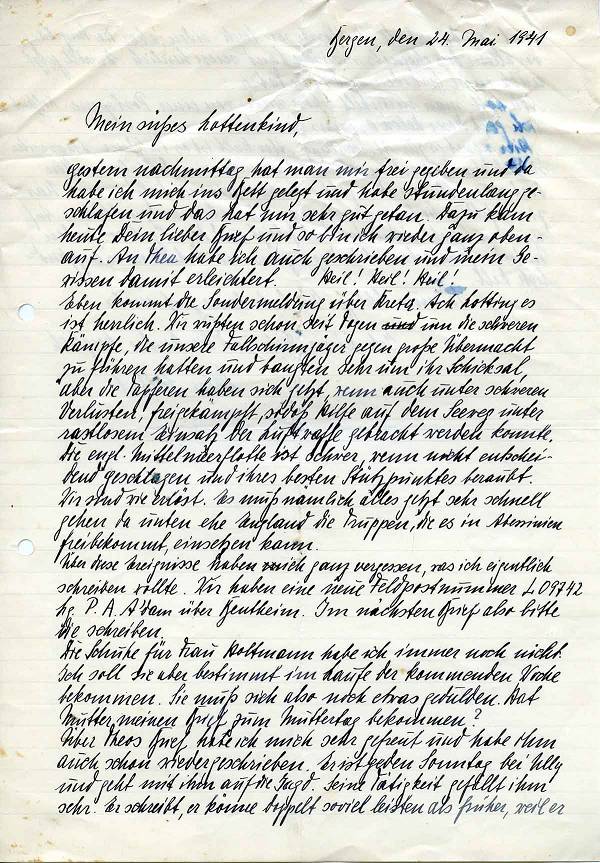 Bergen, den 24. Mai 1941
Mein süßes Lottenkind,
gestern nachmittag hat man mir frei gegeben und da
habe ich mich ins Bett gelegt und habe stundenlang ge-
schlafen und das hat mir sehr gut getan. Dazu kam
heute Dein lieber Brief und so bin ich wieder ganz oben-
auf. An Thea habe ich auch geschrieben und mein Ge-
wissen damit erleichtert. Heil! Heil! Heil!
Eben kommt die Sondermeldung über Kreta. Ach Lotting es
ist herrlich. Wir wußten schon seit Tagen und um die schweren
Kämpfe, die unsere Fallschirmjäger gegen große Übermacht
zu führen hatten und bangten sehr um ihr Schicksal,
aber die Tapferen haben sich jetzt, wenn auch unter schweren
Verlusten, freigekämpft, sodaß Hilfe auf dem Seeweg unter
rastlosem Einsatz der Luftwaffe gebracht werden konnte.
Die engl. Mittelmeerflotte ist schwer, wenn nicht entschei-
dend geschlagen und ihres besten Stützpunktes beraubt.
Wir sind wie erlöst. Es muß nämlich alles jetzt sehr schnell
gehen da unten ehe England die Truppen, die es in Abessinien
freibekommt, einsetzen kann.
Über diese Ereignisse haben ich ganz vergessen, was ich eigentlich
schreiben wollte. Wir haben eine neue Feldpostnummer L 09742
Lg. P. A. A'dam über Bentheim. Im nächsten Brief also bitte
die schreiben.
Die Schuhe für Frau Holtmann habe ich immer noch nicht.
Ich soll sie aber bestimmt im Laufe der kommenden Woche
bekommen. Sie muß sich also noch etwas gedulden. Hat
Mutter meinen Brief zum Muttertag bekommen?
Über Theos Brief habe ich mich sehr gefreut und habe ihm
auch schon wiedergeschrieben. Er ist jeden Sonntag bei Ully
und geht mit ihm auf die Jagd. Seine Tätigkeit gefällt ihm
sehr. Er schreibt, er könne doppelt soviel leisten als früher, weil er